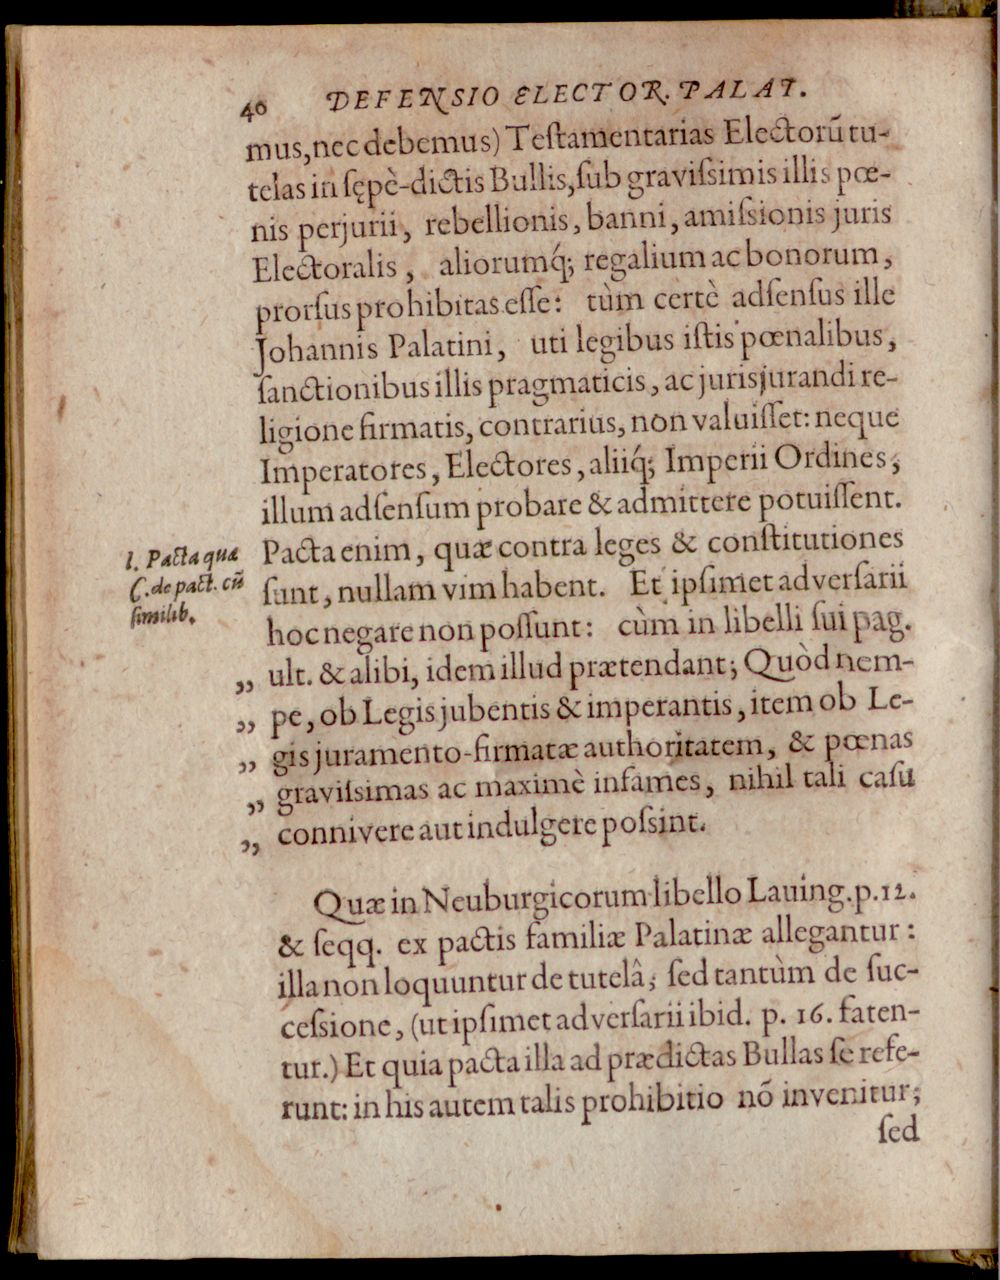 40 DEFENSIO ELECTOR. PALAT.
mus, nec debemus) Teſtamentarias Electorū tu-
telas in ſępè-dictis Bullis, ſub graviſsimis illis pœ-
nis perjurii, rebellionis, banni, amiſsionis juris
Electoralis, aliorumq́; regalium ac bonorum,
prorſus prohibitas eſſe: tùm certè adſenſus ille
Johannis Palatini, uti legibus iſtis pœnalibus,
ſanctionibus illis pragmaticis, ac jurisjurandi re-
ligione firmatis, contrarius, non valuiſſet: neque
Imperatores, Electores, aliiq́; Imperii Ordines,
illum adſenſum probare & admittere potuiſſent.
Pacta enim, quæ contra leges & conſtitutiones
ſunt, nullam vim habent. Et ipſimet adverſarii
hoc negare non poſſunt: cùm in libelli ſui pag.
„ ult. & alibi, idem illud prætendant; Quòd nem-
„ pe, ob Legis jubentis & imperantis, item ob Le-
„ gis juramento-firmatæ authoritatem, & pœnas
„ graviſsimas ac maximè infames, nihil tali caſu
„ connivere aut indulgere poſsint.
l. Pacta quæ
C. de pact. cū
ſimilib.
Quæ in Neuburgicorum libello Lauing. p. 12.
& ſeqq. ex pactis familiæ Palatinæ allegantur:
illa non loquuntur de tutelâ; ſed tantùm de ſuc-
ceſsione, (ut ipſimet adverſarii ibid. p. 16. faten-
tur.) Et quia pacta illa ad prædictas Bullas ſe refe-
runt: in his autem talis prohibitio nō invenitur;
ſed